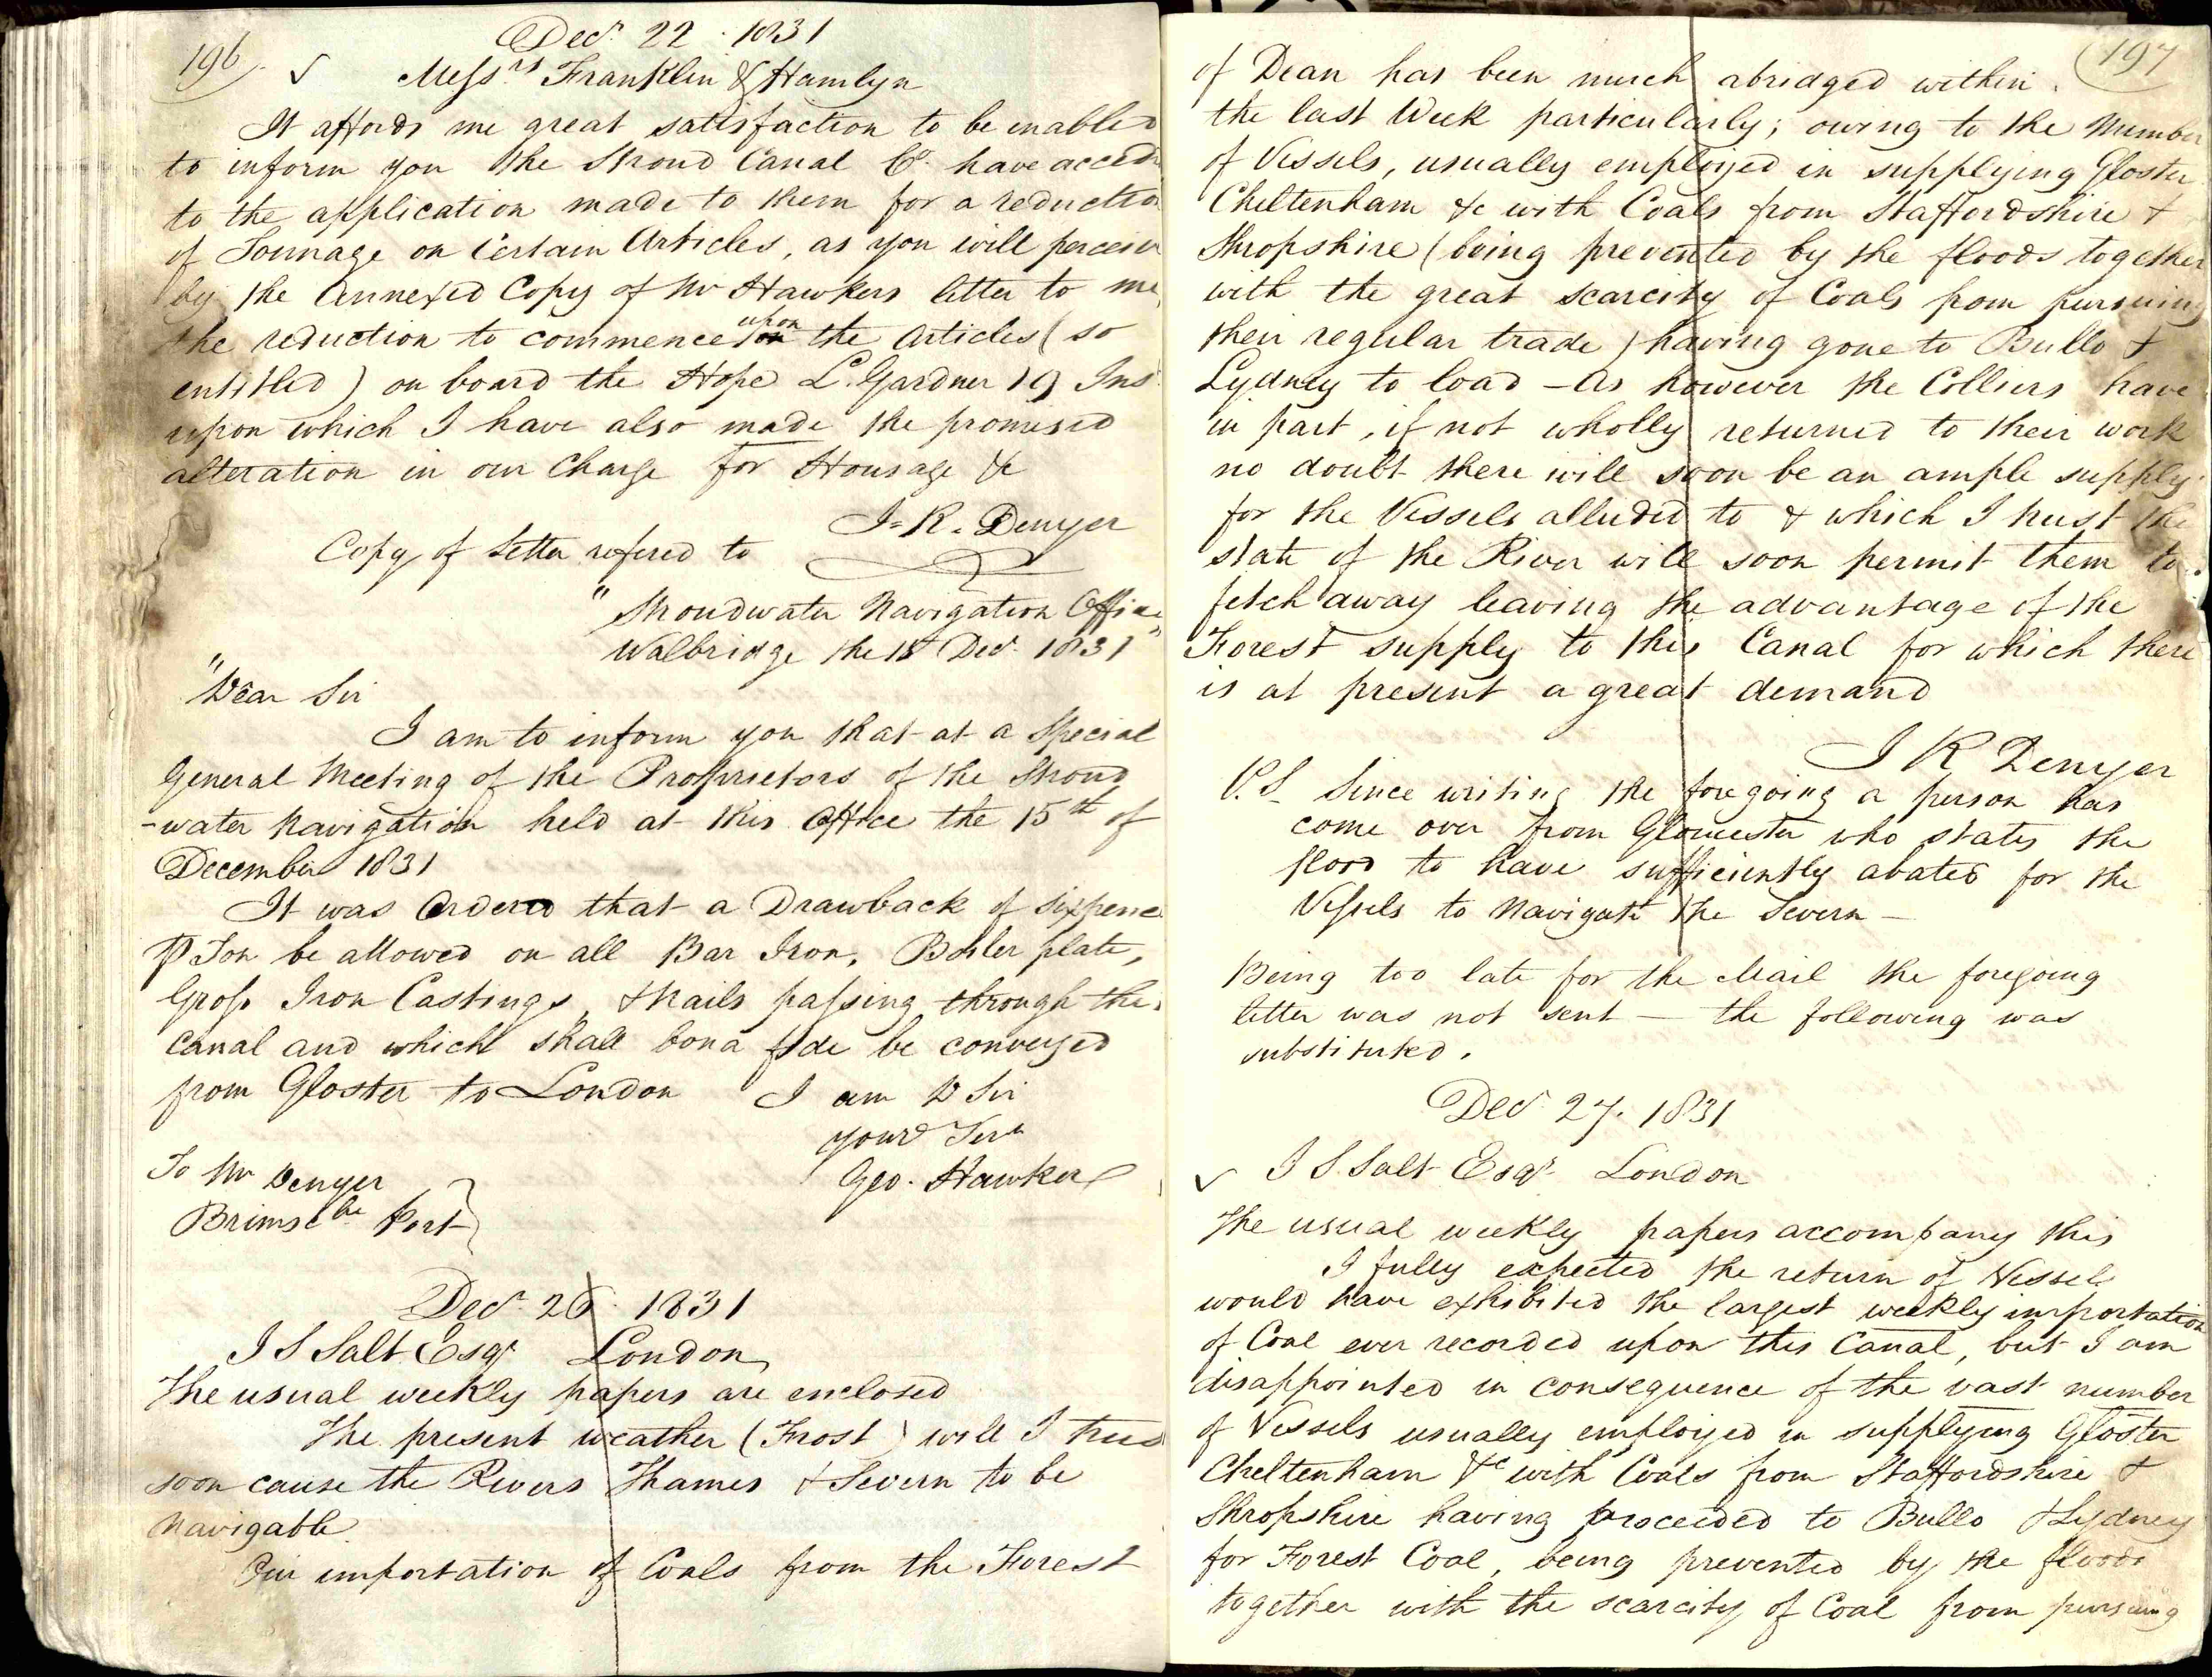 196
Decr 22. 1831
✓ Messrs Franklin & Hamlyn
It affords me great satisfaction to be enabled
to inform you the Stroud Canal Co. have acceded
to the application made to them for a reduction
of Tonnage on Certain Articles, as you will perceive
by the Annexed Copy of Mr Hawkers letter to me,
the reduction to commence upon the Articles (so
entitled) on board the Hope L. Gardner 19 Inst
upon which I have also made the promised
alteration in our Charge for Housage &c
J. R. Denyer
Copy of Letter refered to
"Stroudwater Navigation Office
Walbridge the Decr 1831"
"Dear Sir
I am to inform you that at a Special
General Meeting of the Proprietors of the Stroud
-water Navigation held at this Office the 15th of
December 1831
It was Ordered that a Drawback of Sixpence
⅌ Ton be allowed on all Bar Iron, Boiler plate,
Gross Iron Castings, & Nails passing through the
Canal and which shall bona fide be conveyed
from Gloster to London I am D Sir
your Sert
Geo. Hawker
To Mr Denyer
Brimscbe Port
Decr 26. 1831
I S Salt Esqr London
The usual weekly papers are enclosed
The present weather (Frost) will I trust
soon cause the Rivers Thames & Severn to be
Navigable
Our importation of Coals from the Forest
197
of Dean has been much abridged within
the last Week particularly; owing to the Number
of Vessels, usually employed in supplying Gloster
Cheltenham &c with Coals from Staffordshire &
Shropshire (being prevented by the floods together
with the great scarcity of Coals from pursuing
their regular trade) having gone to Bullo &
Lydney to load – As however the Colliers have
in part, if not wholly returned to their work
no doubt there will soon be an ample supply
for the Vessels alluded to & which I trust the
state of the River will soon permit them to
fetch away leaving the advantage of the
Forest supply to this Canal for which there
is at present a great demand
J R Denyer
P.S. Since writing the foregoing a person has
come over from Gloucester who states the
flood to have sufficiently abated for the
Vessels to Navigate the Severn –
Being too late for the Mail the foregoing
letter was not sent – the following was
substituted.
Decr 27. 1831
✓ I S. Salt Esqr London
The usual weekly papers accompany this
I fully expected the return of Vessels
would have exhibited the largest weekly importation
of Coal ever recorded upon this Canal, but I am
disappointed in consequence of the vast number
of Vessels usually employed in supplying Gloster
Cheltenham &c with Coals from Staffordshire &
Shropshire having proceeded to Bullo & Lydney
for Forest Coal, being prevented by the floods
together with the scarcity of Coal from pursuing